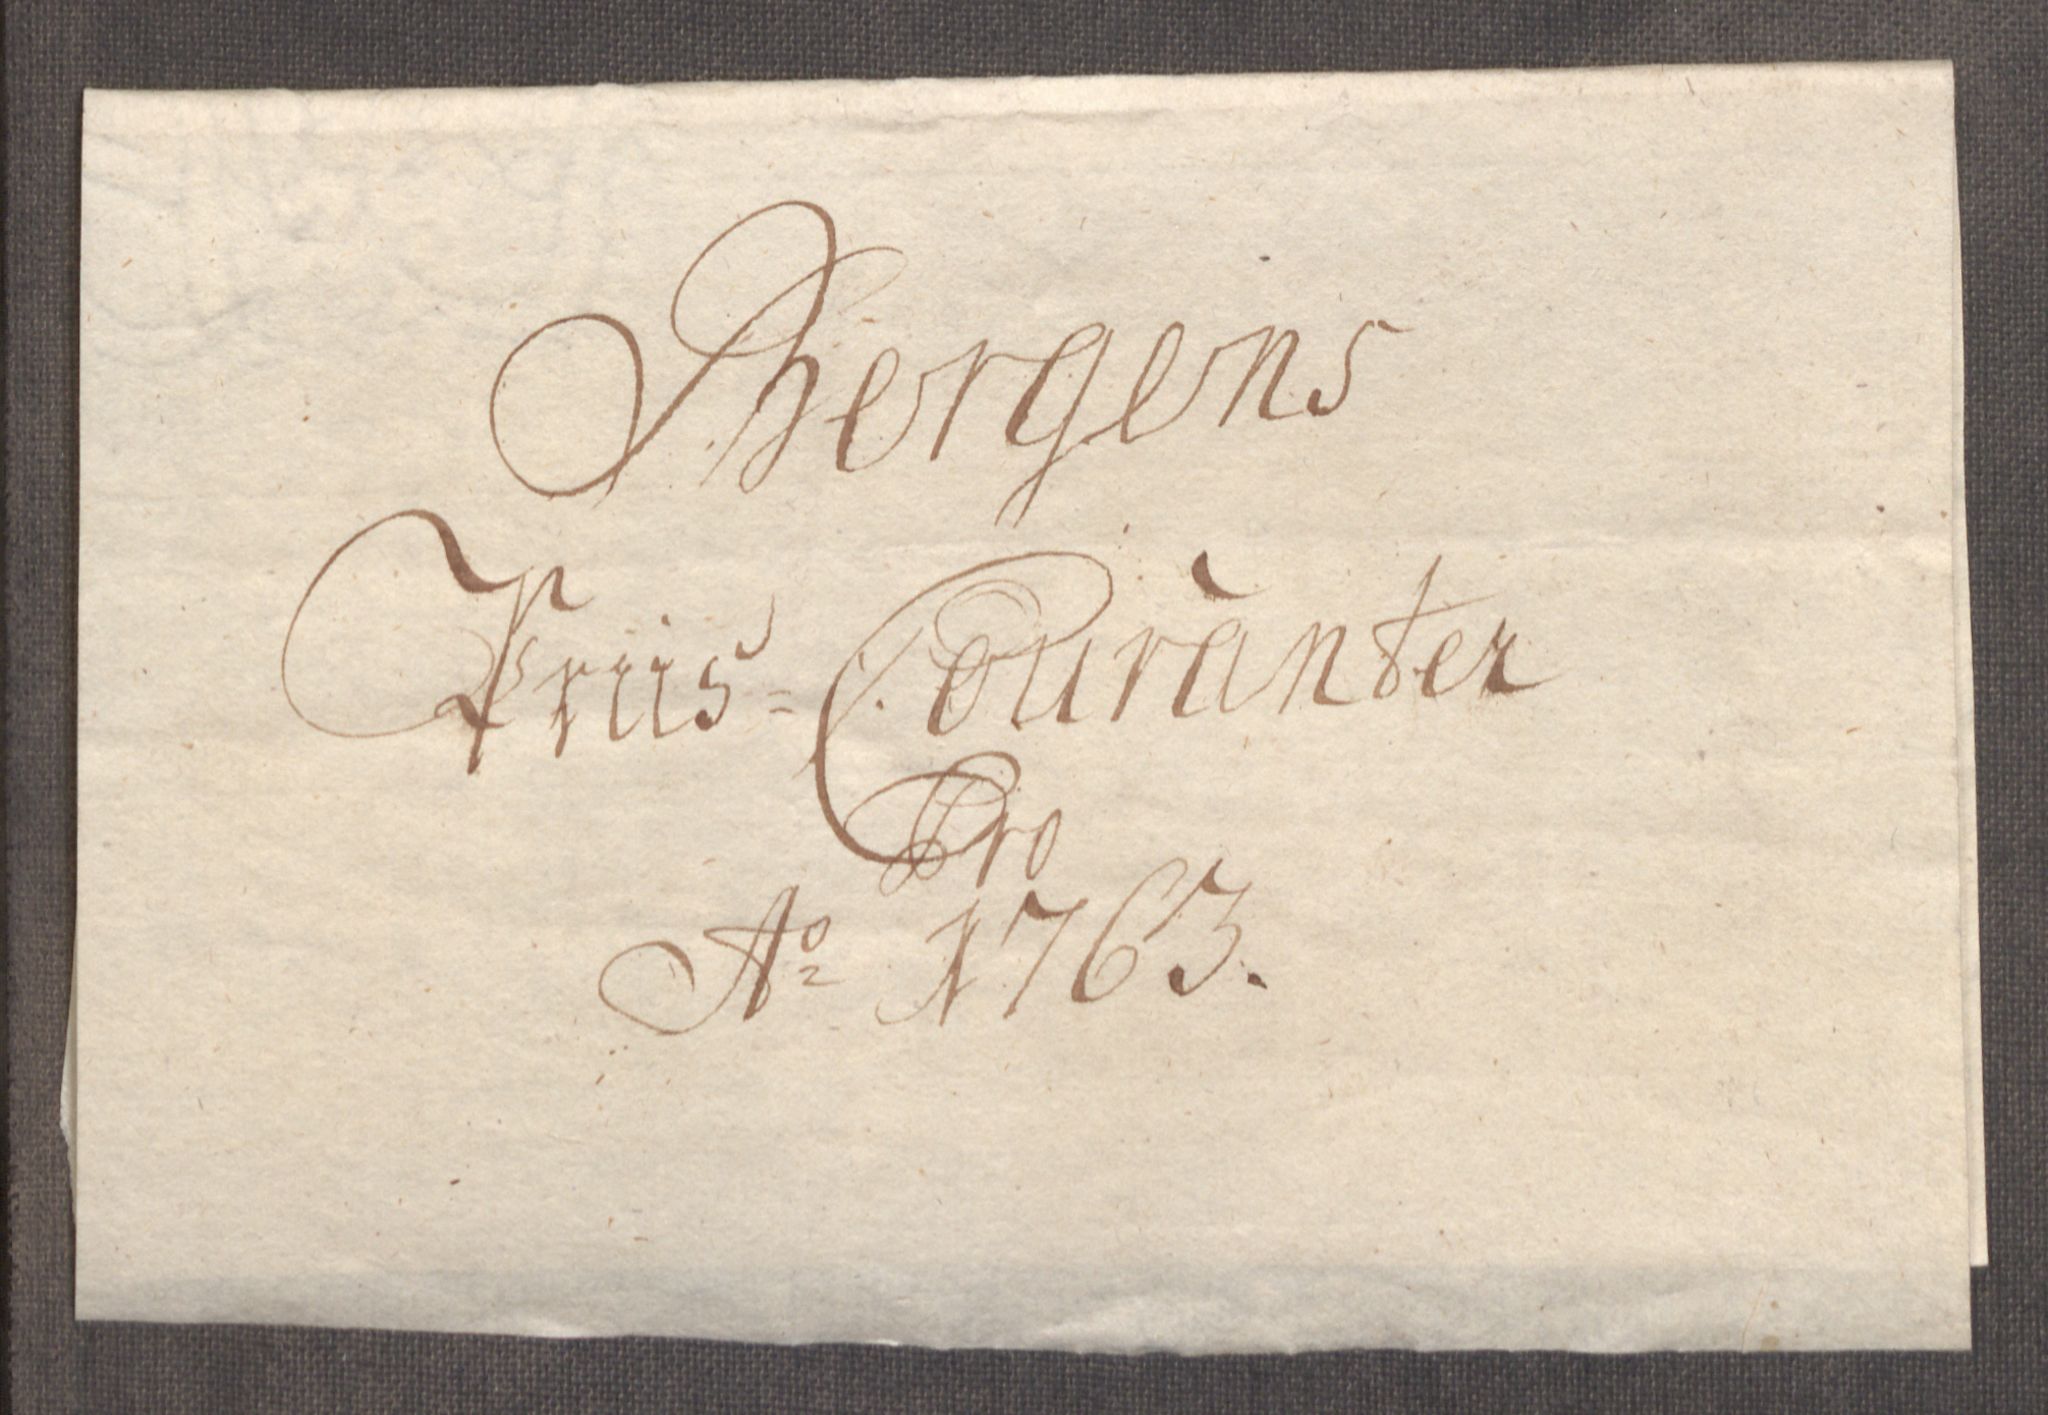 Bergens
Priis=Couranter
Pro
Aº 1763.